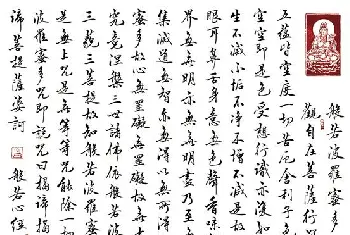 般若波羅蜜多
觀自在菩薩行
五蘊皆空度一切苦厄舍利子色
空空即是色受想行識亦復如
生不滅不垢不淨不增不減是故
眼耳鼻舌身意無色聲香味
界無無明亦無無明盡乃至無
集滅道無智亦無得以無所
蜜多故心無罣礙無罣礙故無
究竟涅槃三世諸佛依般若波
三藐三菩提故知般若波羅蜜
是無上咒是無等等咒能除一切
波羅蜜多咒即說咒曰揭諦揭
諦菩提薩婆訶 般若心經